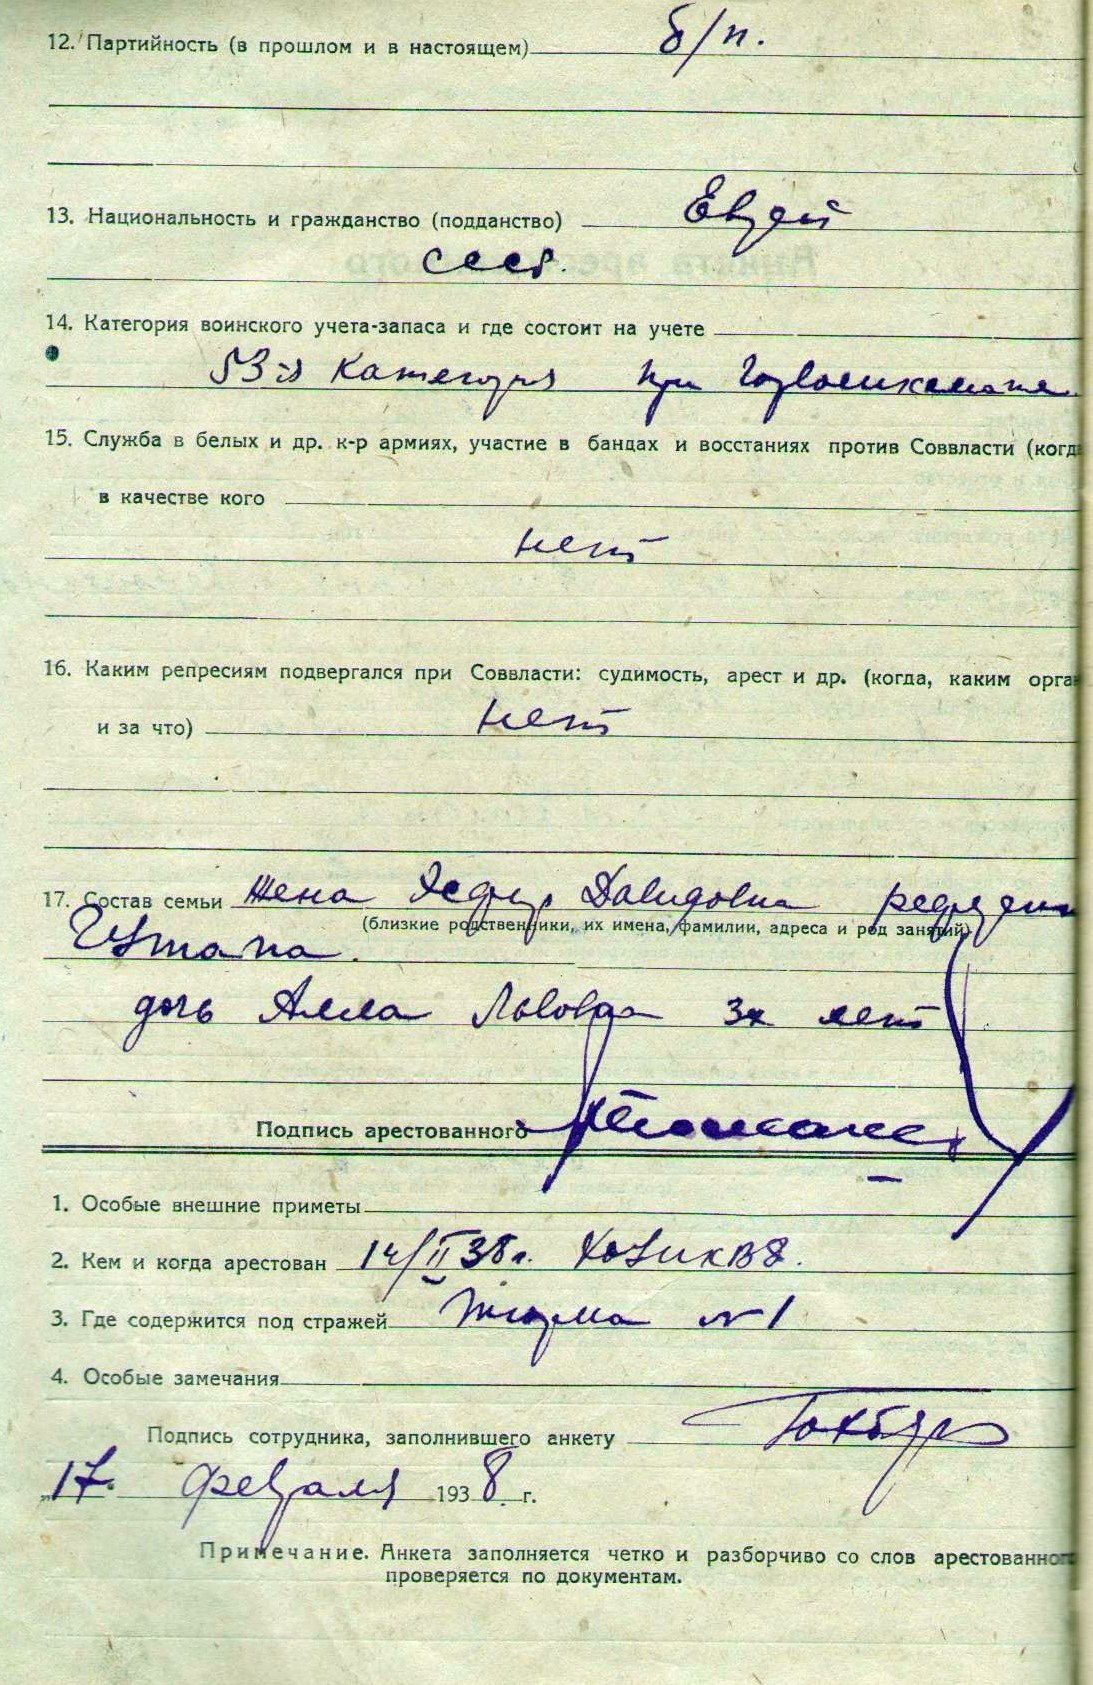 12. Партийность (в прошлом и в настоящем) б/п.
13. Национальность и гражданство (подданство) Еврей
СССР.
14. Категория воинского учета-запаса и где состоит на учете
53-я категория при Горвоенкомате
15. Служба в белых и др. к-р армиях, участие в бандах и восстаниях против Соввласти (когда
в качестве кого
нет
16. Каким репресиям подвергался при Соввласти: судимость, арест и др. (когда, каким орга
и за что) нет
17. Состав семьи Жена Давидовна
(близкие родственники, их имена, фамилии, адреса и род занятий)
дочь Алла Львовна 3х лет
Подпись арестованного
1. Особые внешние приметы —
2. Кем и когда арестован 14/II 38 г.
3. Где содержится под стражей Тюрьма №1
4. Особые замечания
Подпись сотрудника, заполнившего анкету
„17. февраля 1938 г.
Примечание. Анкета заполняется четко и разборчиво со слов арестованного
проверяется по документам.